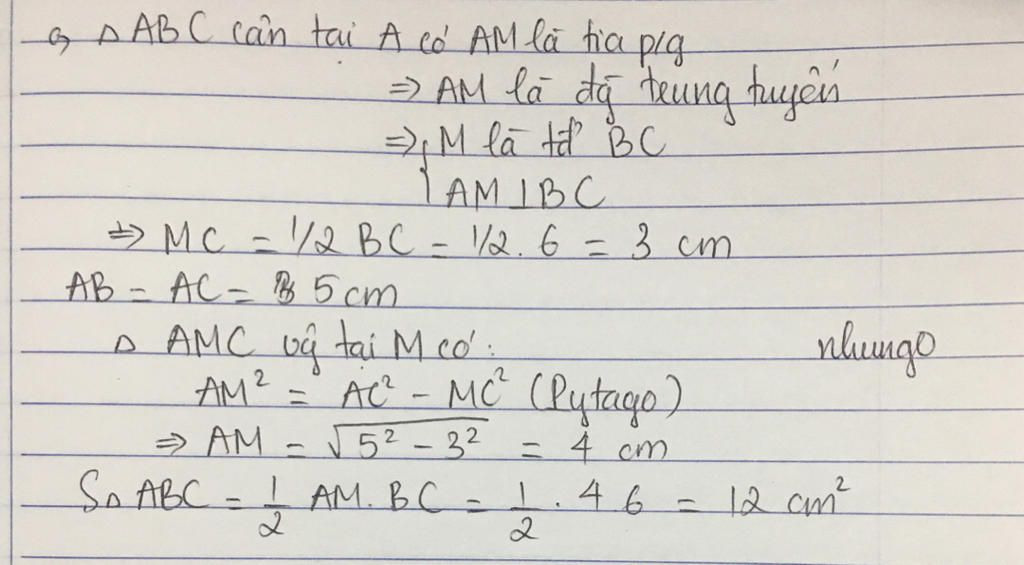 a, Δ ABC cân tại A có AM là tia p/g
⇒ AM là đg trung tuyến
⇒ { M là tđ BC
AM ⊥ BC
⇒ MC = 1/2 BC = 1/2 . 6 = 3 cm
AB = AC = 5 cm
Δ AMC vg tại M có:
nhungo
AM² = AC² - MC² (Pytago)
⇒ AM = √5² - 3² = 4 cm
SΔ ABC = 1/2 AM. BC = 1/2 . 4 6 = 12 cm²